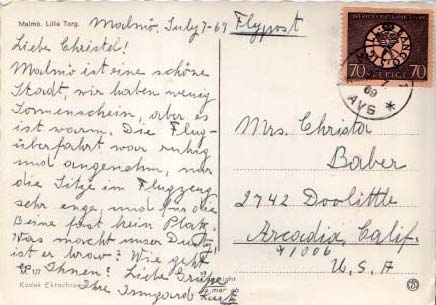 Malmö. Lilla Torg.
Malmö, July 7-69
Flypost
Liebe Christel!
Malmö ist eine schöne
Stadt, wir haben wenig
Sonnenschein, aber es
ist warm. Die Flug-
überfahrt war ruhig
und angenehm, nur
die Sitze im Flugzeug
sehr enge, und für die
Beine fast kein Platz.
Was macht unser Dusty,
ist er brav? Wie geht
es Ihnen? Liebe Grüße
Ihre Irmgard
Kodak Ektachrome
SVERIGES RIKSBANK
70 SVERIGE 70
69
AVG
Mrs. Christa
Baber
2742 Doolittle
Arcadia, Calif.
91006
U.S.A